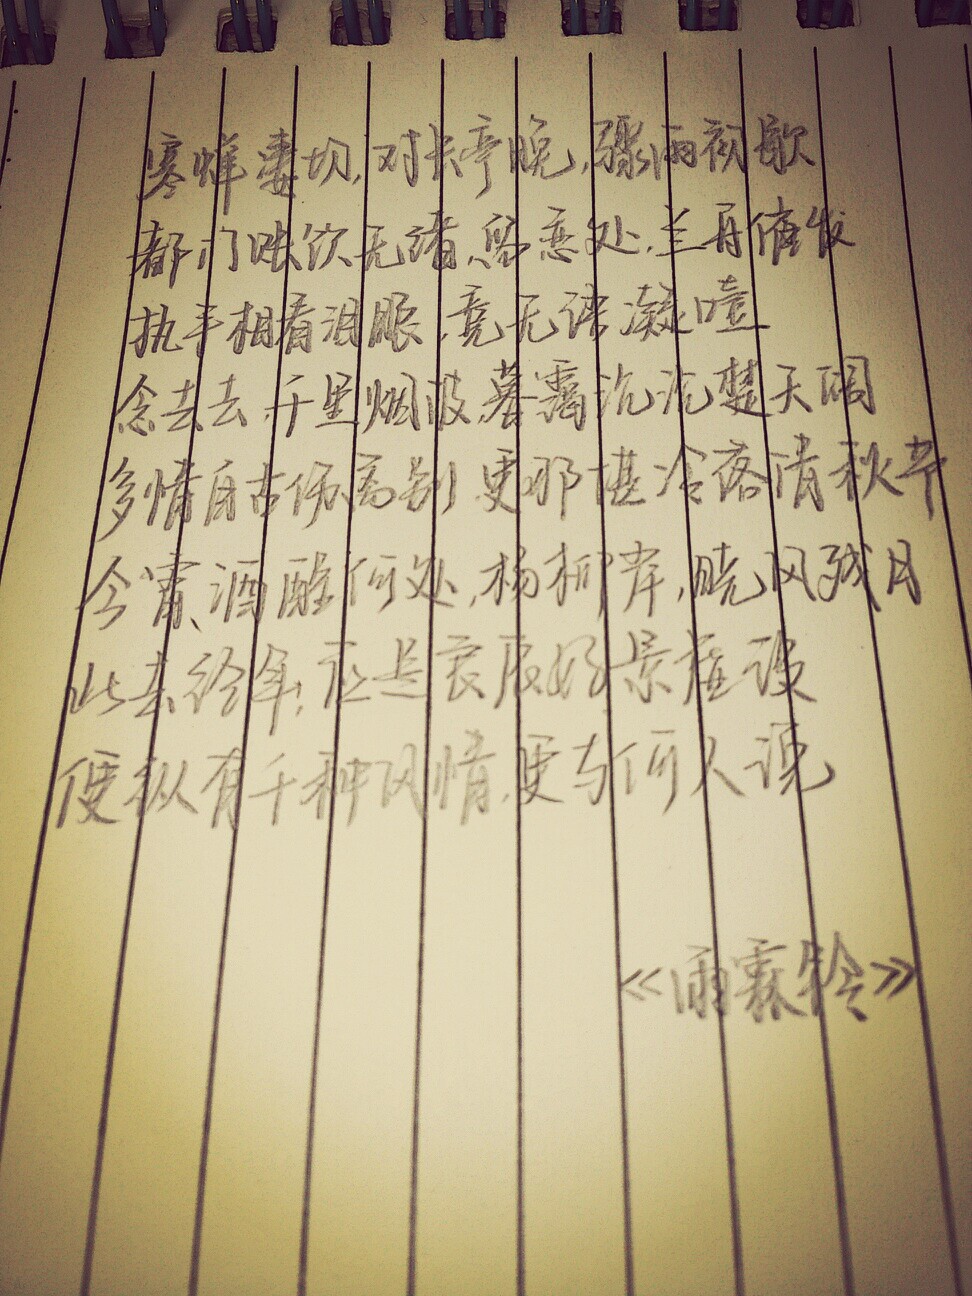 寒蝉凄切,对长亭晚,骤雨初歇
都门帐饮无绪,留恋处,兰舟催发
执手相看泪眼,竟无语凝噎
念去去,千里烟波,暮霭沉沉楚天阔
多情自古伤离别,更那堪冷落清秋节
今宵酒醒何处,杨柳岸,晓风残月
此去经年,应是良辰好景虚设
便纵有千种风情,更与何人说
《雨霖铃》